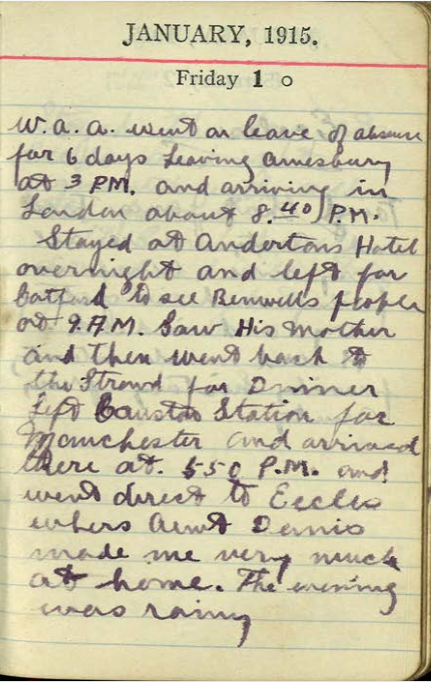 JANUARY, 1915.
Friday 1 o
W. A. A. went on leave of absence
for 6 days leaving Amesbury
at 3 P.M. and arriving in
London about 8.40 P.M.
Stayed at Andertons Hotel
overnight and left for
Catford to see Benwells people
at 9 A.M. Saw His Mother
and then went back to
the Strand for Dinner
Left Euston Station for
Manchester and arrived
there at 5.50 P.M. and
went direct to Eccles
where Aunt
made me very much
at home. The evening
was rainy